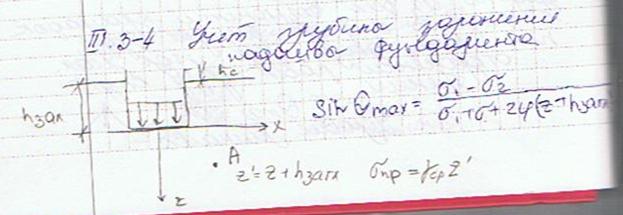 III. 3-4 Учет глубины заложения
подошвы фундамента
hс
hзал
x
z
sin Θmax = σ1 - σ2 / σ1 + σ + 2γ(z + hзагл
A
z' = z + hзагл σпр = γср z'